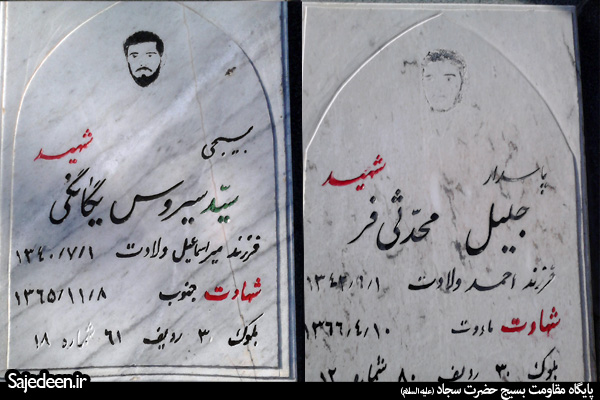 بسیجی شهید
سید سیروس یگانگی
فرزند میراسماعیل ولادت ۱۳۴۰/۷/۱
شهادت جنوب ۱۳۶۵/۱۱/۸
بلوک ۳۰ ردیف ۶۱ شماره ۱۸
پاسدار شهید
جلیل محدثی فر
فرزند احمد ولادت
شهادت ماووت ۱۳۶۶/۴/۱۰
بلوک ۳۰ ردیف ۸۰ شماره ۱۲
Sajedeen.ir
پایگاه مقاومت بسیج حضرت سجاد (علیه السلام)